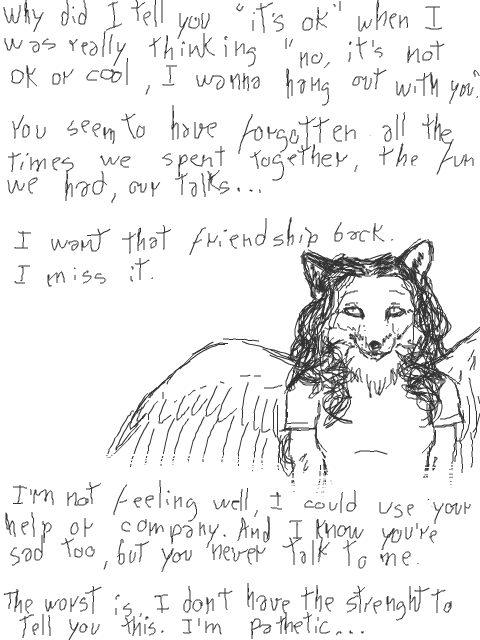 Why did I tell you "it's ok" when I
was really thinking "no, it's not
ok or cool, I wanna hang out with you".
You seem to have forgotten all the
times we spent together, the fun
we had, our talks...
I want that friendship back.
I miss it.
I'm not feeling well, I could use your
help or company. And I know you're
sad too, but you never talk to me.
The worst is.. I don't have the strenght to
tell you this. I'm pathetic...